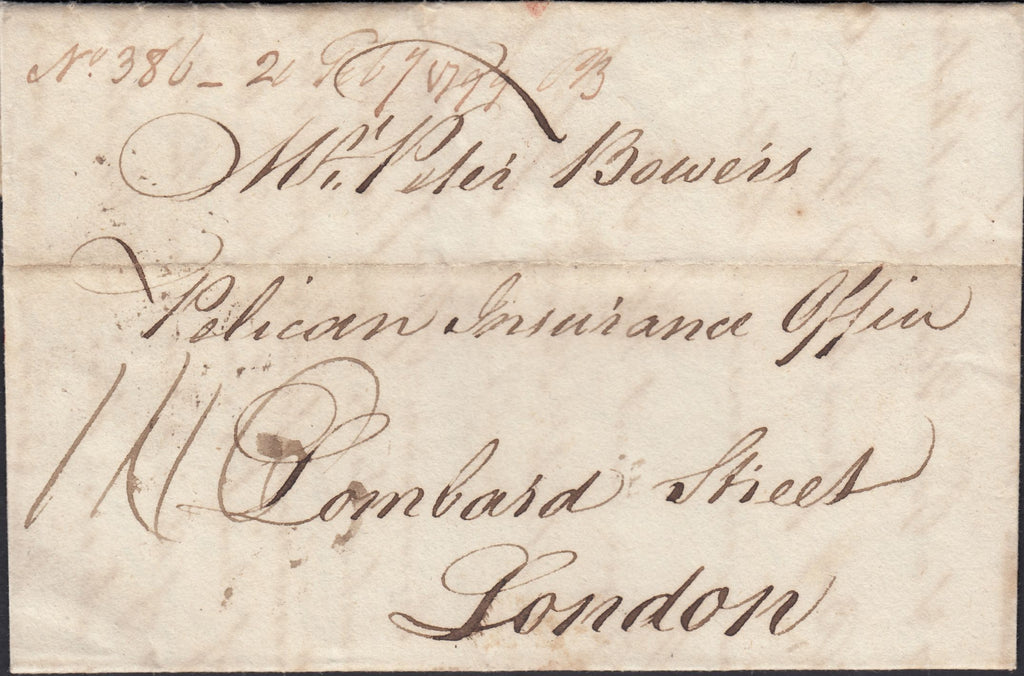 No. 386 - 20 Feby 1799 PB
Mr. Peter Bowers
Pelican Insurance Office
Lombard Street
London